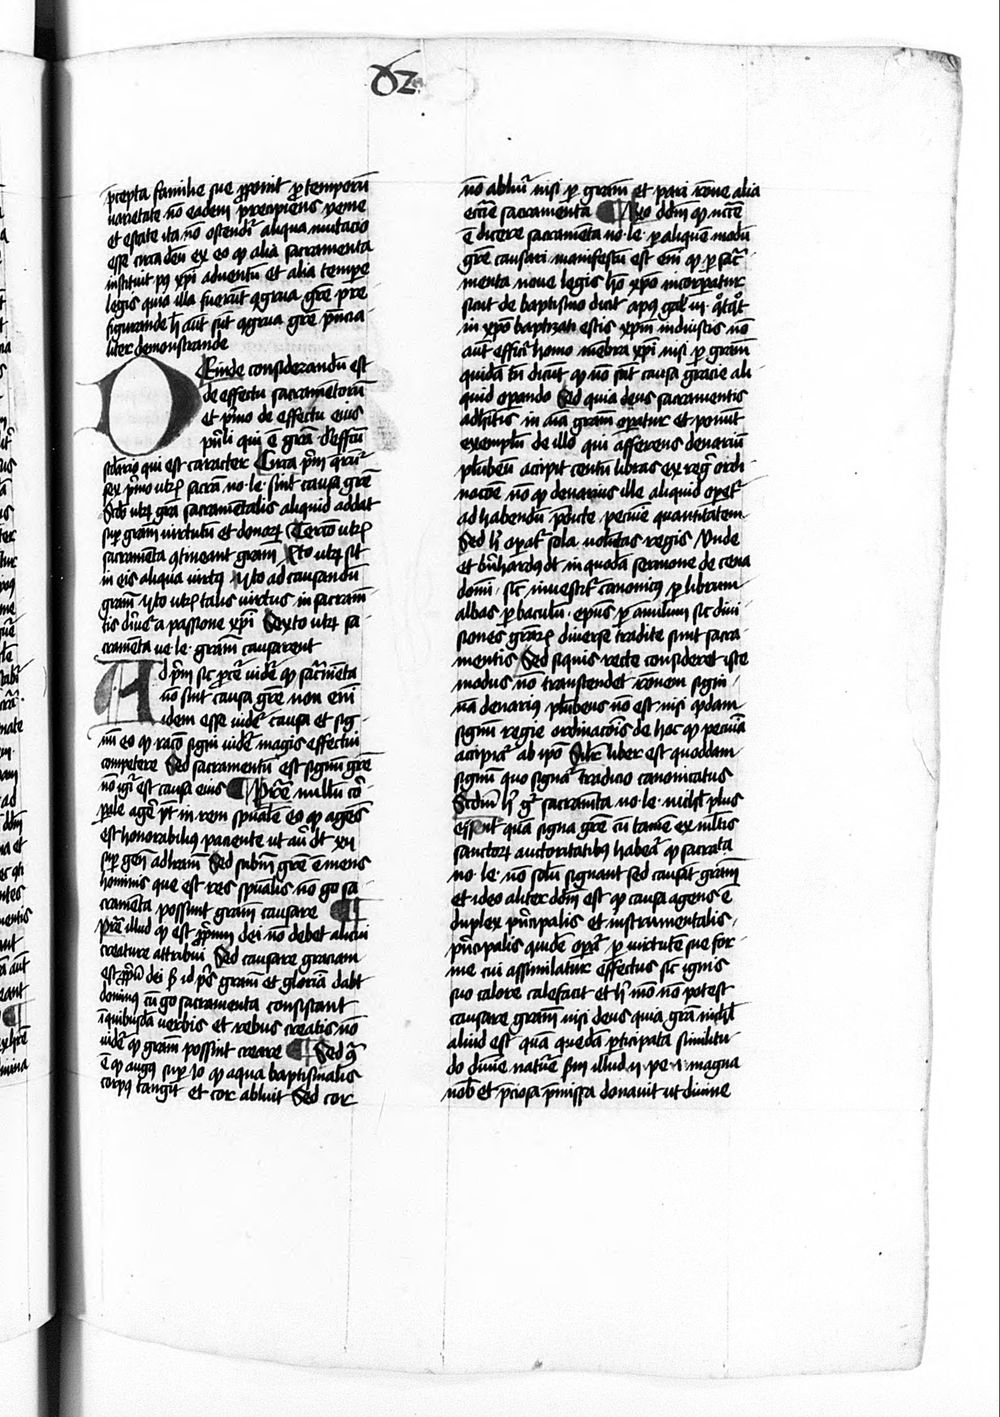 62
p̄cepta familie sue ꝓponit ꝑ temporū
uarietate nō eadem precipiens yeme
et estate ita nō ostendit᷑ aliqua mutacio
esse circa deū ex eo ꝙ alia sacramenta
instituit pꝰ xp̄i aduentū et alia tempe
legis quia illa fuerūt ꝯgrua gr̄e pre
figurande h̄ aūt sūt ꝯgrua gr̄e p̄ncia
liter demonstrande
DEinde considerandū est
de effectu sacramētorū
et p̄mo de effectu eius
pn̄li qui ē grā
sc̄dario qui est caracter Circa p̄m q̄rūt᷑
sex p̄mo utꝝ sacrā no. le. sint causa gr̄e
Scd̄o utꝝ grā sacramētalis aliquid addat
suꝑ gram̄ uirtutū et donoꝝ Tercō utꝝ
sacramēta ꝯtineant gram̄ 4to utꝝ sit
in eis aliqua uirtꝰ ad causandū
gram̄ 5to utꝝ talis uirtus in sacram̄
tis deriuet᷑ a passione xp̄i Sexto utꝝ sa
cramēta ue. le. gram̄ causarent
Ad p̄m sic ꝓcr̄e uidet᷑ ꝙ sacramēta
nō sint causa gr̄e non enī
idem esse uidet᷑ causa et sig
nū eo ꝙ racō signi uidet᷑ magis effectui
competere Sed sacramentū est signū gr̄e
nō igit᷑ est causa eius ¶ Pret̄e nullū cor
porale agere pōt in rem spūalē eo ꝙ agēs
est honorabilius paciente ut aū dt xij
suꝑ gen̄ ad lrām Sed subm̄ gr̄e ē mens
hominis que est res spūalis nō ḡo sa
cramēta possunt gram̄ causare ¶
Pret̄e illud ꝙ est ꝓprium dei nō debet alicui
creature attribui Sed causare graciam
est ꝓpriū dei ẜ id pͣs gram̄ et gloriā dabit
dominus cū ḡo sacramenta consistant
ī quibusdā uerbis et rebus creatis nō
uidet᷑ ꝙ gram̄ possint creare ¶ Sed ꝯͣ
ē ꝙ augꝰ suꝑ Io ꝙ aqua baptismalis
corpꝰ tangit et cor abluit Sed cor
nō abluit᷑ nisi ꝑ gram̄ et pari rōne alia
ecc̄ie sacramenta ¶ Rn̄o dd̄m ꝙ nc̄c̄e
ē dicere sacramēta no. le. ꝑ aliquē modū
gr̄e causari manifestū est enī ꝙ ꝑ sacra
menta noue legis hō xp̄o incorporatur
sicut de baptismo dicit apꝰ gal iij. quotquot
in xp̄o baptizati estis xp̄m induistis nō
aūt efficit᷑ homo mēbra xp̄i nisi ꝑ gram̄
quidā tn̄ dicūt ꝙ nō sūt causa gracie ali
quid operando Sed quia deus sacramentis
adhibitis in aīa gram̄ operatur et ponūt
exemplū de illo qui afferens denariū
plūbeū accipit centū libras ex regꝭ ordi
nacōe nō ꝙ denarius ille aliquid operet᷑
ad habendū p̄dicte pecunie quantitatem
Sed h̄ operat᷑ sola uolūtas regis Unde
et bn̄hardꝰ dt in quodā sermone de cena
domī. sic inuestit᷑ canonicus ꝑ librum
abbas ꝑ baculū. ep̄us ꝑ anulum sic diui
siones graꝝ diuerse tradite sunt sacra
mentis Sed siquis recte consideret iste
modus nō transcendet rōnem signi
nā denariꝰ plūbeus nō est nisi quoddam
signū regie ordinacōis de hoc ꝙ pecūia
accipiat᷑ ab ip̄o Silr̄ liber est quoddam
signū quo signat᷑ tradicio canonicatus
Scd̄m h̄ gͥ sacramēta no. le. nichil plus
essent quā signa gr̄e cū tamē ex multis
sanctoꝝ auctoritatibꝰ habeat᷑ ꝙ sacramēta
no. le. nō solū signant sed causāt gram̄
et ideo aliter dd̄m est ꝙ causa agens ē
duplex pn̄cipalis et instrumentalis.
pn̄cipalis quidē operat᷑ ꝑ virtutē sue for
me cui assimilatur effectus sic ignis
suo calore calefacit et h̄ mō nō potest
causare gram̄ nisi deus quia grā nichil
aliud est quā quedā ꝑticipata similitu
do diuine nature scd̄m illud ij pe. i. magna
nob̄ et p̄ciosa ꝓmissa donauit ut diuine